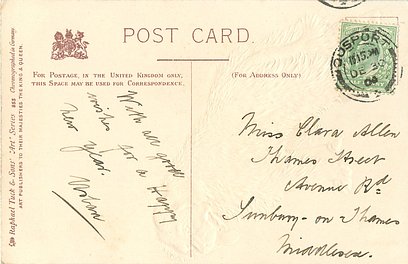 POST CARD.
FOR POSTAGE, IN THE UNITED KINGDOM ONLY,
THIS SPACE MAY BE USED FOR CORRESPONDENCE.
(FOR ADDRESS ONLY)
GOSPORT
DE 30
With all good
wishes
for a Happy
New Year.
Miss Clara Allen
Thames Street
Avenue Rd
Sunbury-on-Thames
Middlesex.
Raphael Tuck & Sons' "Art" Series Chromographed in Germany
ART PUBLISHERS TO THEIR MAJESTIES THE KING & QUEEN.